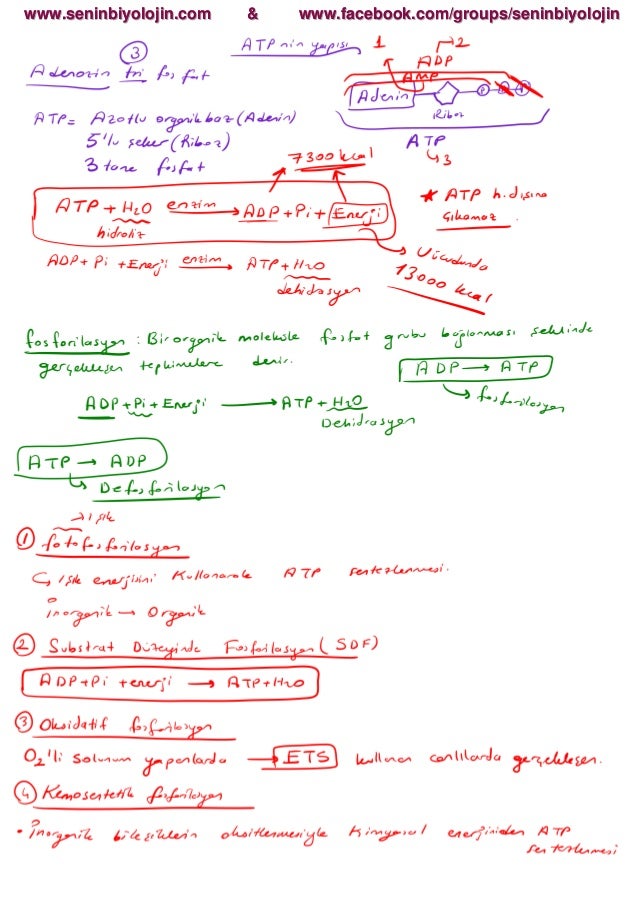 www.seninbiyolojin.com & www.facebook.com/groups/seninbiyolojin
ATP nin yapısı
3
Adenozin tri fosfat
1 2
ADP
AMP
Adenin P P P
Riboz
ATP
3
ATP = Azotlu organik baz (Adenin)
5'lu şeker (Riboz)
3 tane fosfat
7300 kcal
ATP + H2O enzim ADP + Pi + Enerji
hidroliz
* ATP h. dışına
çıkamaz.
ADP + Pi + Enerji enzim ATP + H2O
dehidrasyon
Vücudunda
13000 kcal
fosforilasyon : Bir organik moleküle fosfat grubu bağlanması şeklinde
gerçekleşen tepkimelere denir.
ADP → ATP
fosforilasyon
ADP + Pi + Enerji → ATP + H2O
Dehidrasyon
ATP → ADP
Defosforilasyon
→ ışık
1 fotofosforilasyon
Işık enerjisini kullanarak ATP sentezlenmesi.
inorganik → Organik
2 Substrat Düzeyinde Fosforilasyon (SDF)
ADP + Pi + enerji → ATP + H2O
3 Oksidatif fosforilasyon
O2'li solunum yapanlarda → ETS kullanan canlılarda gerçekleşen.
4 Kemosentetik fosforilasyon
• İnorganik bileşiklerin oksitlenmesiyle kimyasal enerjiniden ATP
sentezlenmesi